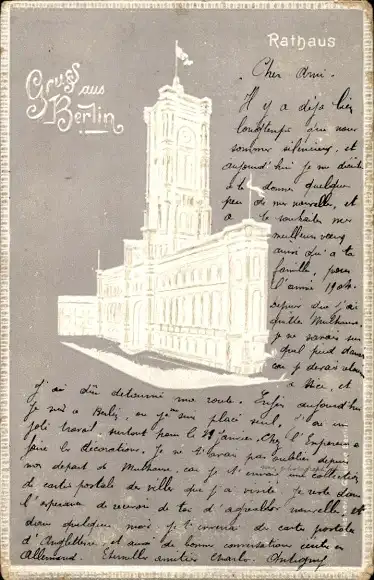 Rathaus
Gruss aus
Berlin
Cher Ami.
Il y a déja bien
longtemps que nous
sommes silencieux, et
aujourd'hui je me décide
à te donner quelque
peu de mes nouvelles, et
à te souhaiter mes
meilleurs voeux
ainsi qu'à ta
famille, pour
l'année 1904.
Depuis que j'ai
quitté Mulhouse
je ne savais sur
quel pied danser
car je devais
à Nice, et
j'ai dû détourner ma route. Enfin aujourd'hui
je suis à Berlin, ou je suis placé seul, j'ai un
joli travail surtout pour le Chez l'Empereur
faire les décorations. Je ne t'avais pas oublié depuis
mon départ de Mulhouse, car je t'envoie une collection
de cartes postales des villes que j'ai visité. Je reste dans
l'espérance de recevoir de toi d'aussi nouvelles et
dans quelques mois je t'enverrai des cartes postales
d'Angleterre et aussi de bonne conversation
Allemand. Eternelles amitiés Charles